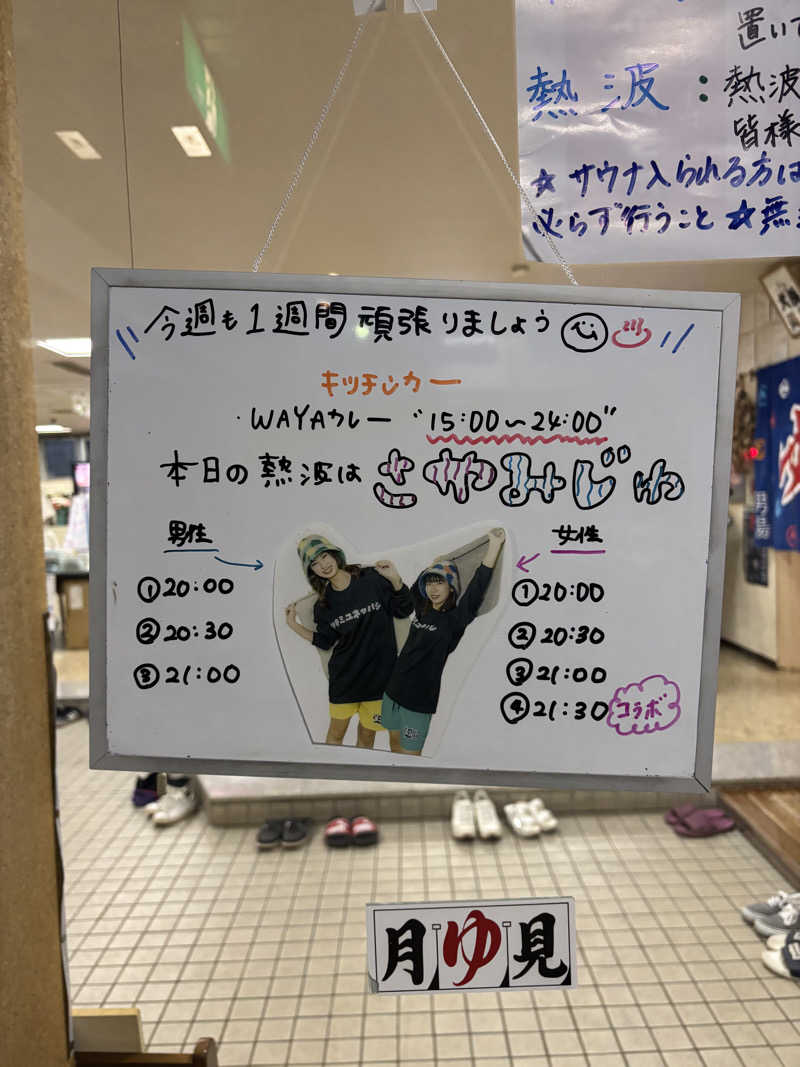 置いて
熱波：熱波
皆様
☆サウナ入られる方は
必らず行うこと☆無
今週も1週間頑張りましょう
キッチンカー
・WAYAカレー "15:00〜24:00"
本日の熱波はさやみじゅ
男性
①20:00
②20:30
③21:00
女性
①20:00
②20:30
③21:00
④21:30 コラボ
月ゆ見